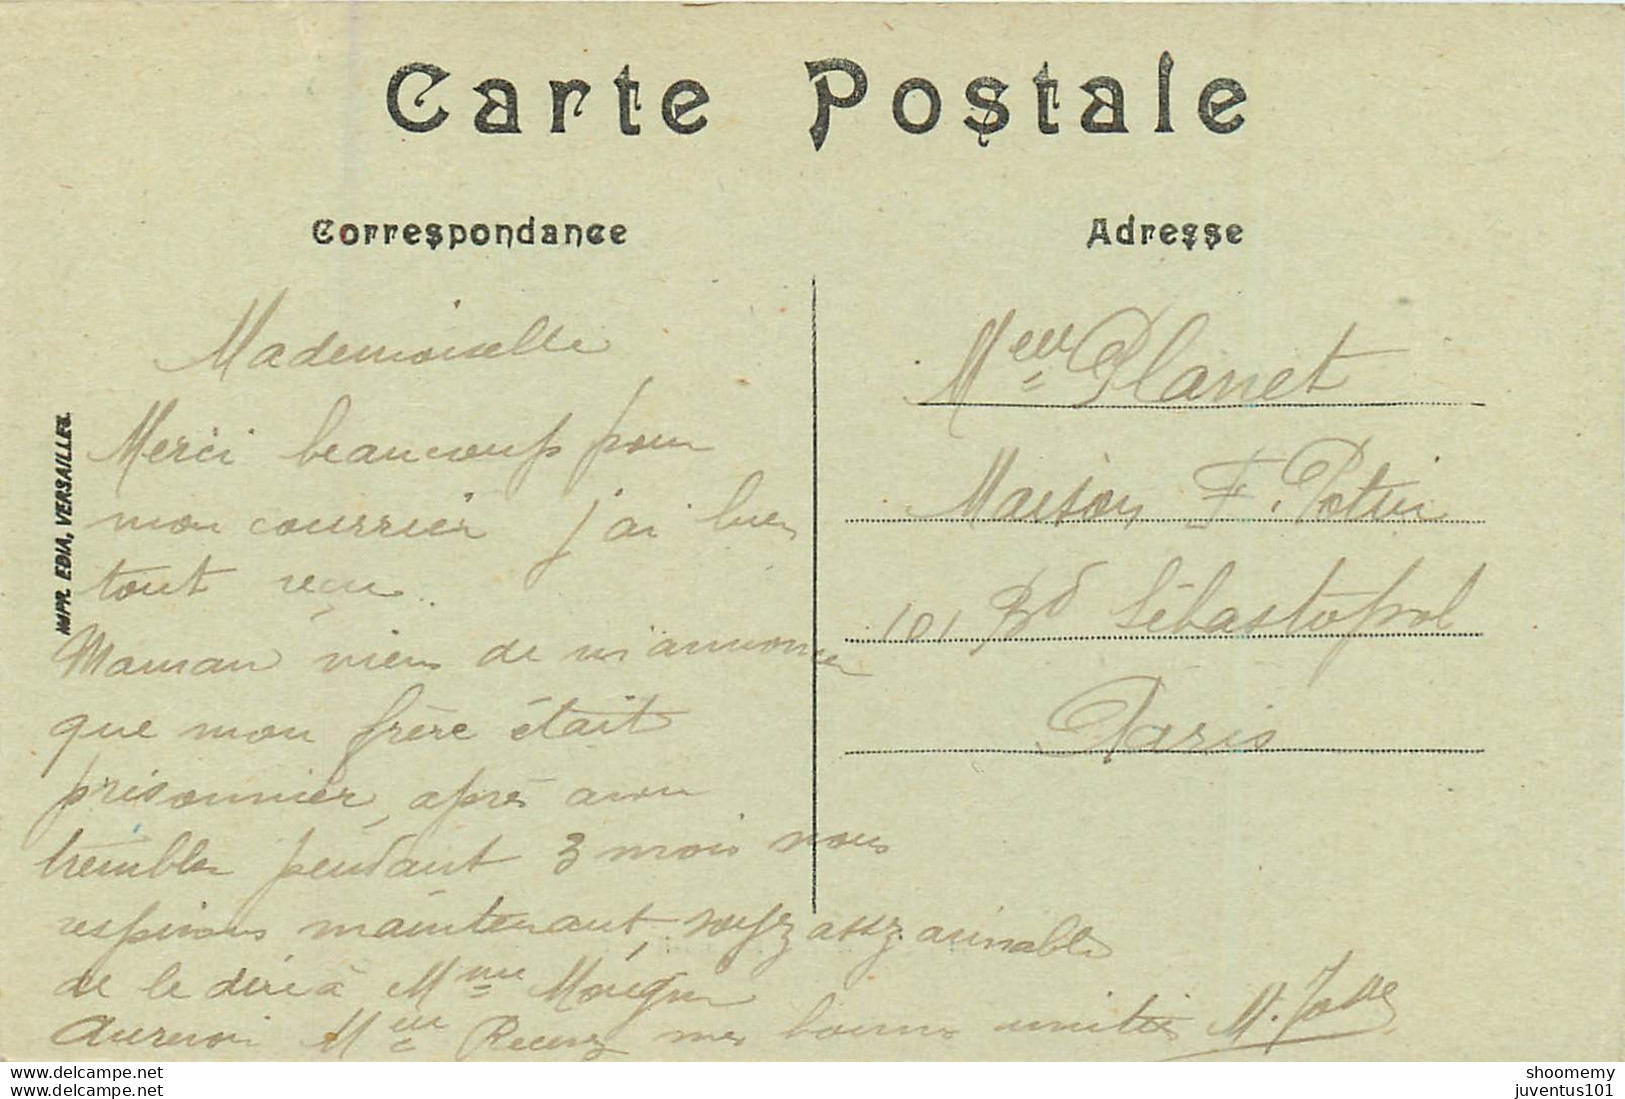 Carte Postale
Correspondance
Adresse
Mademoiselle
Merci beaucoup pour
mon courrier j'ai bien
tout reçu.
Maman viens de m'annoncer
que mon frère était
prisonnier, après avoir
trembler pendant 3 mois nous
respirons maintenant, soyez assez aimable
de le dire à Mme
Aurevoir Mlle Recevez mes bonnes amitiés M. Josse
Melle Planet
Maison F. Potin
101 Bd Sébastopol
Paris
IMPR. EDIA, VERSAILLES.
delcampe.net
shoomemy
juventus101